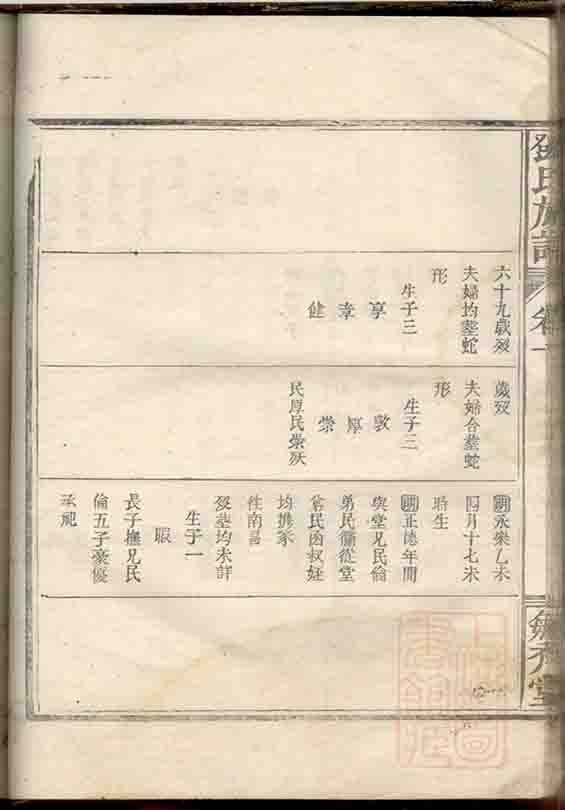 鄧氏族譜
卷一
六十九歲歿
夫婦均塟蛇
形
生子三
享
孝
健
歲歿
夫婦合塟蛇
形
生子三
敦
厚
崇
民厚民崇歿
明永樂乙未
四月十七未
時生
明正德年間
與堂兄民倫
弟民
民函叔姪
均携家
往南昌
歿塟均未詳
生子一
暇
長子撫兄民
倫五子豪優
承祧